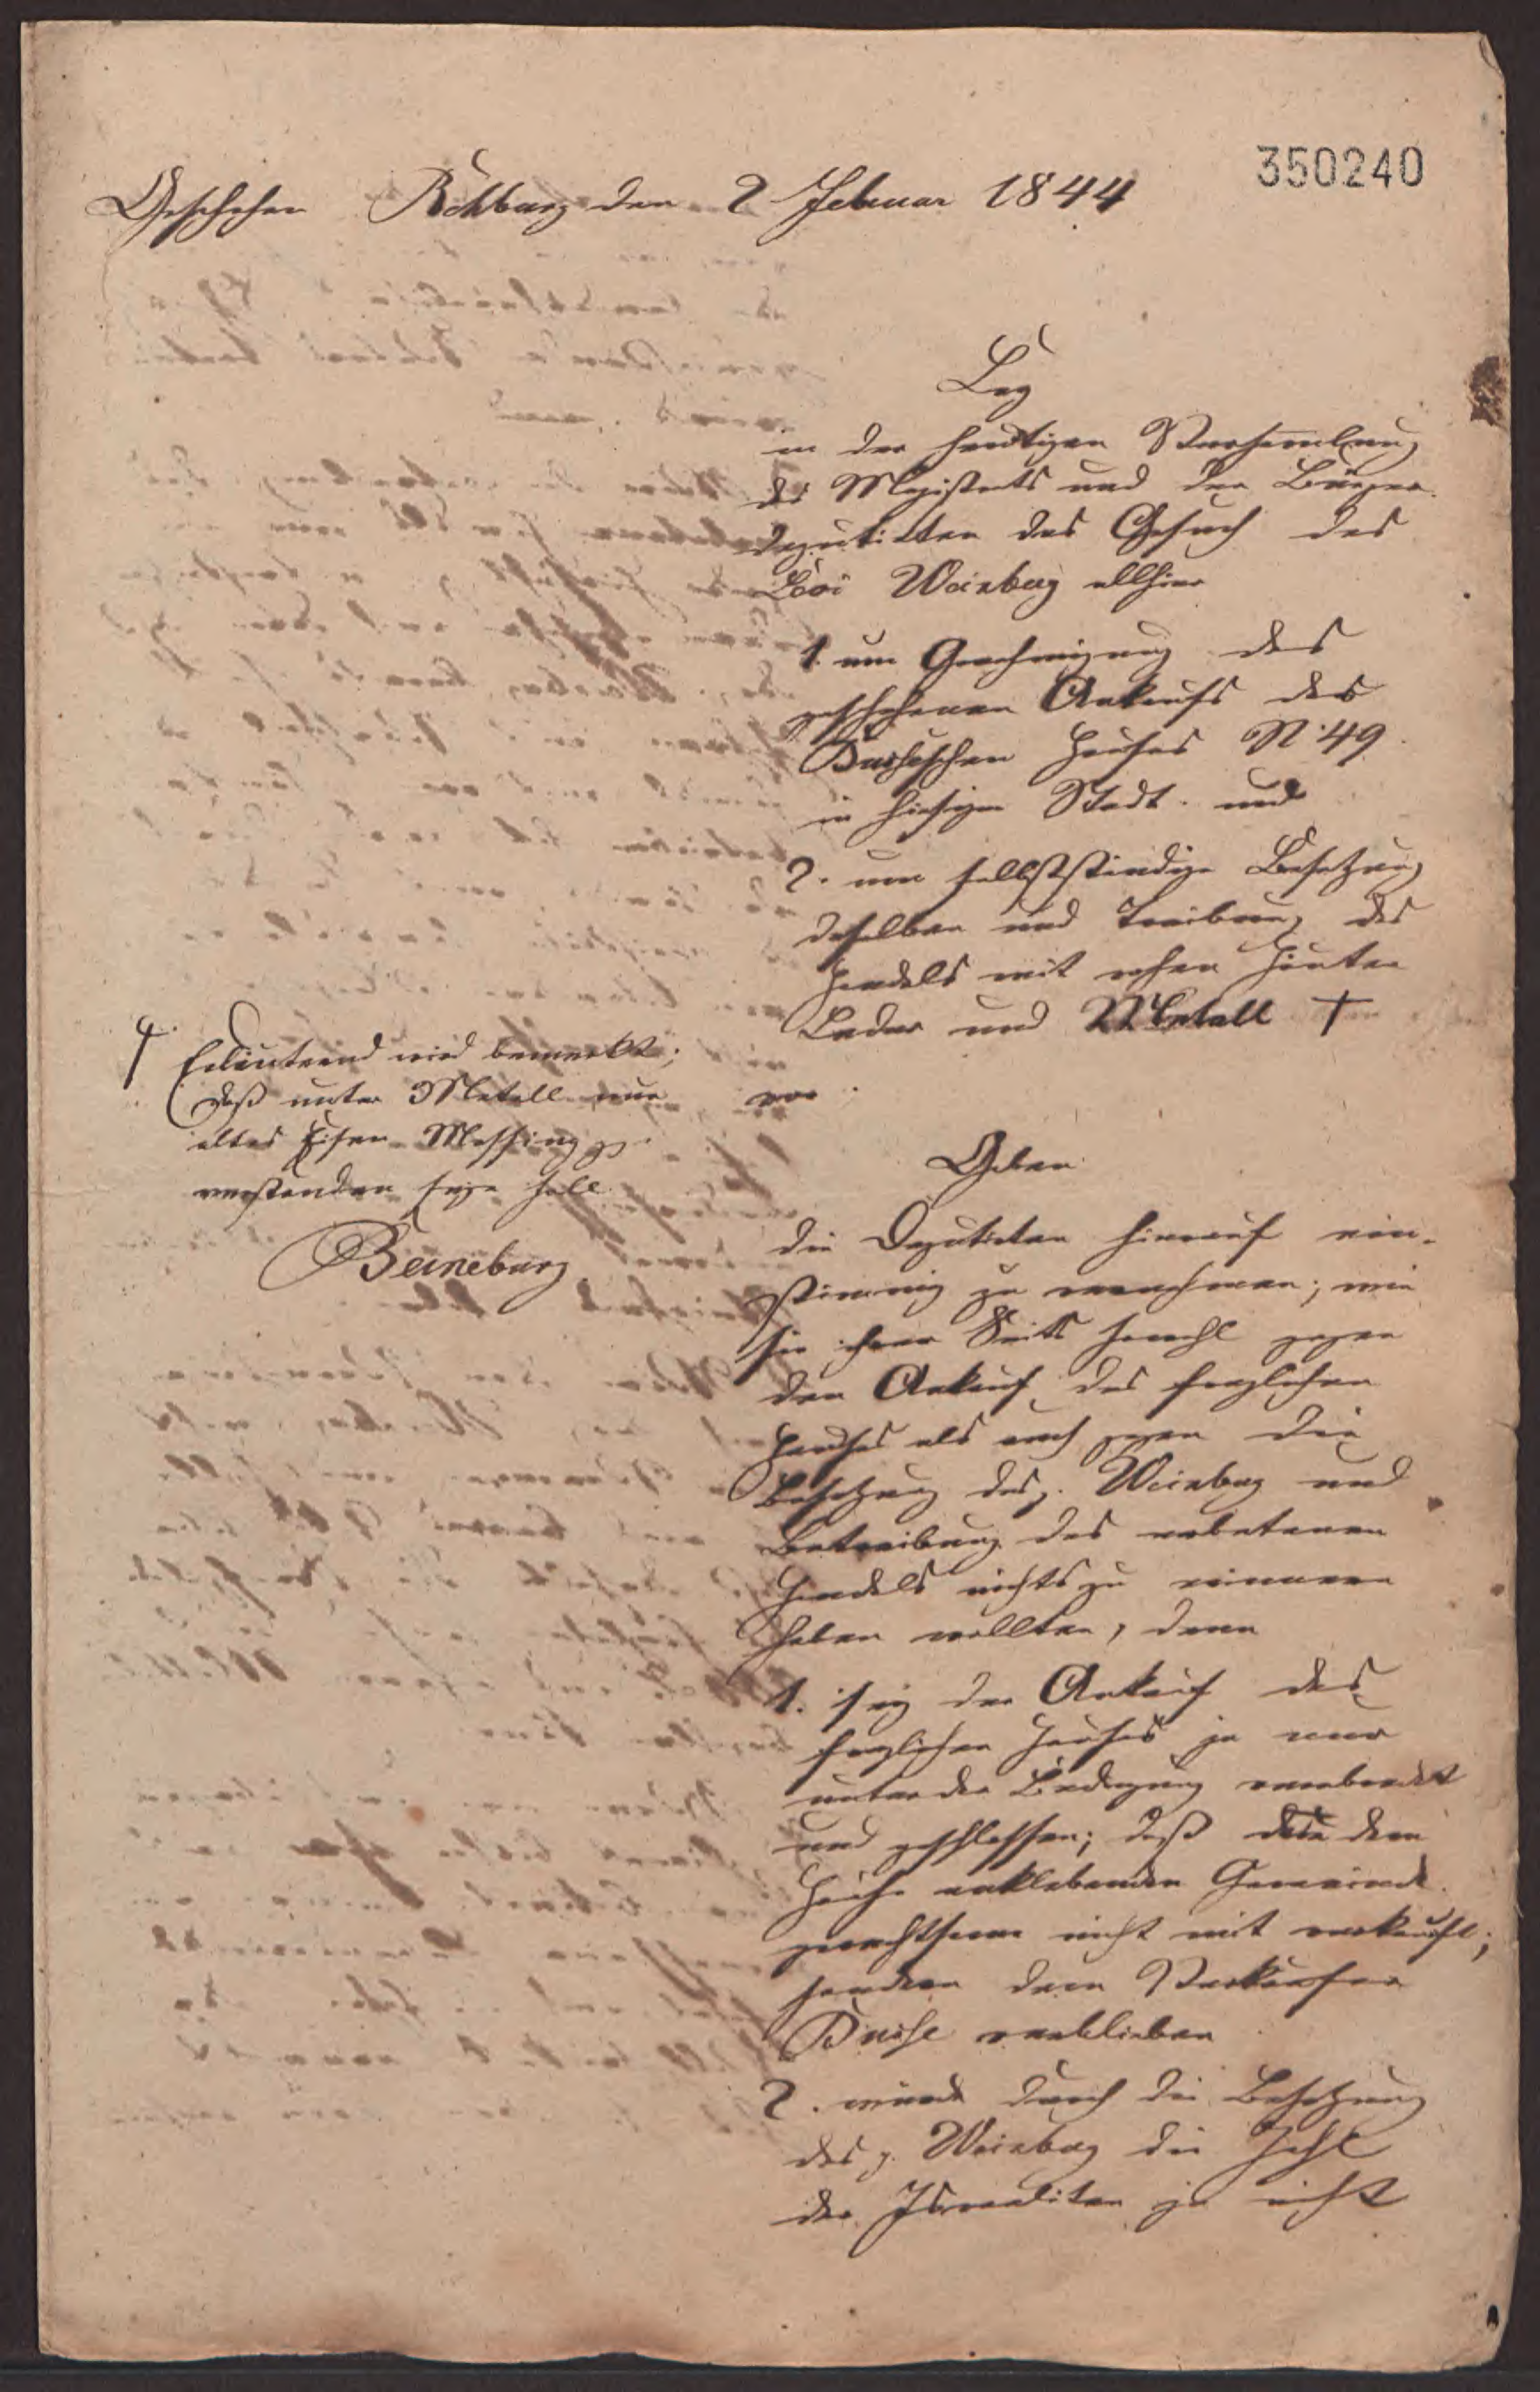 350240
Geschehen Rehburg den 2 Februar 1844
Lag
in der heutigen Versammlung
des Magistrats und der Bürger-
deputirten das Gesuch des
Levi Weinberg allhier
1. um Genehmigung des
geschehenen Ankaufs des
Busheschen Hauses N. 49.
in hiesiger Stadt. und
2. um selbstständige Besetzung
desselben und Treibung des
Handels mit rohen Häuten
Leder und Metall †
vor.
† Erläuternd wird bemerkt;
daß unter Metall nur
altes Eisen Messing pp
verstanden seyn soll.
Beineburg
Gaben
die Deputirten hierauf ein-
stimmig zu vernehmen; wie
sie ihrer Seits sowohl gegen
den Ankauf des fraglichen
Hauses als auch gegen die
Besetzung des p. Weinberg und
Betreibung des erbetenen
Handels nichts zu erinnern
haben wollten, denn
1. sey der Ankauf des
fraglichen Hauses ja nur
unter der Bedingung verabredet
und geschlossen; daß die dem
Hause anklebenden Gemeinde-
gerechtsame nicht mit verkauft;
sondern dem Verkäufer
Bushe verblieben
2. würde durch die Besetzung
des p. Weinberg die Zahl
der Israeliten ja nicht